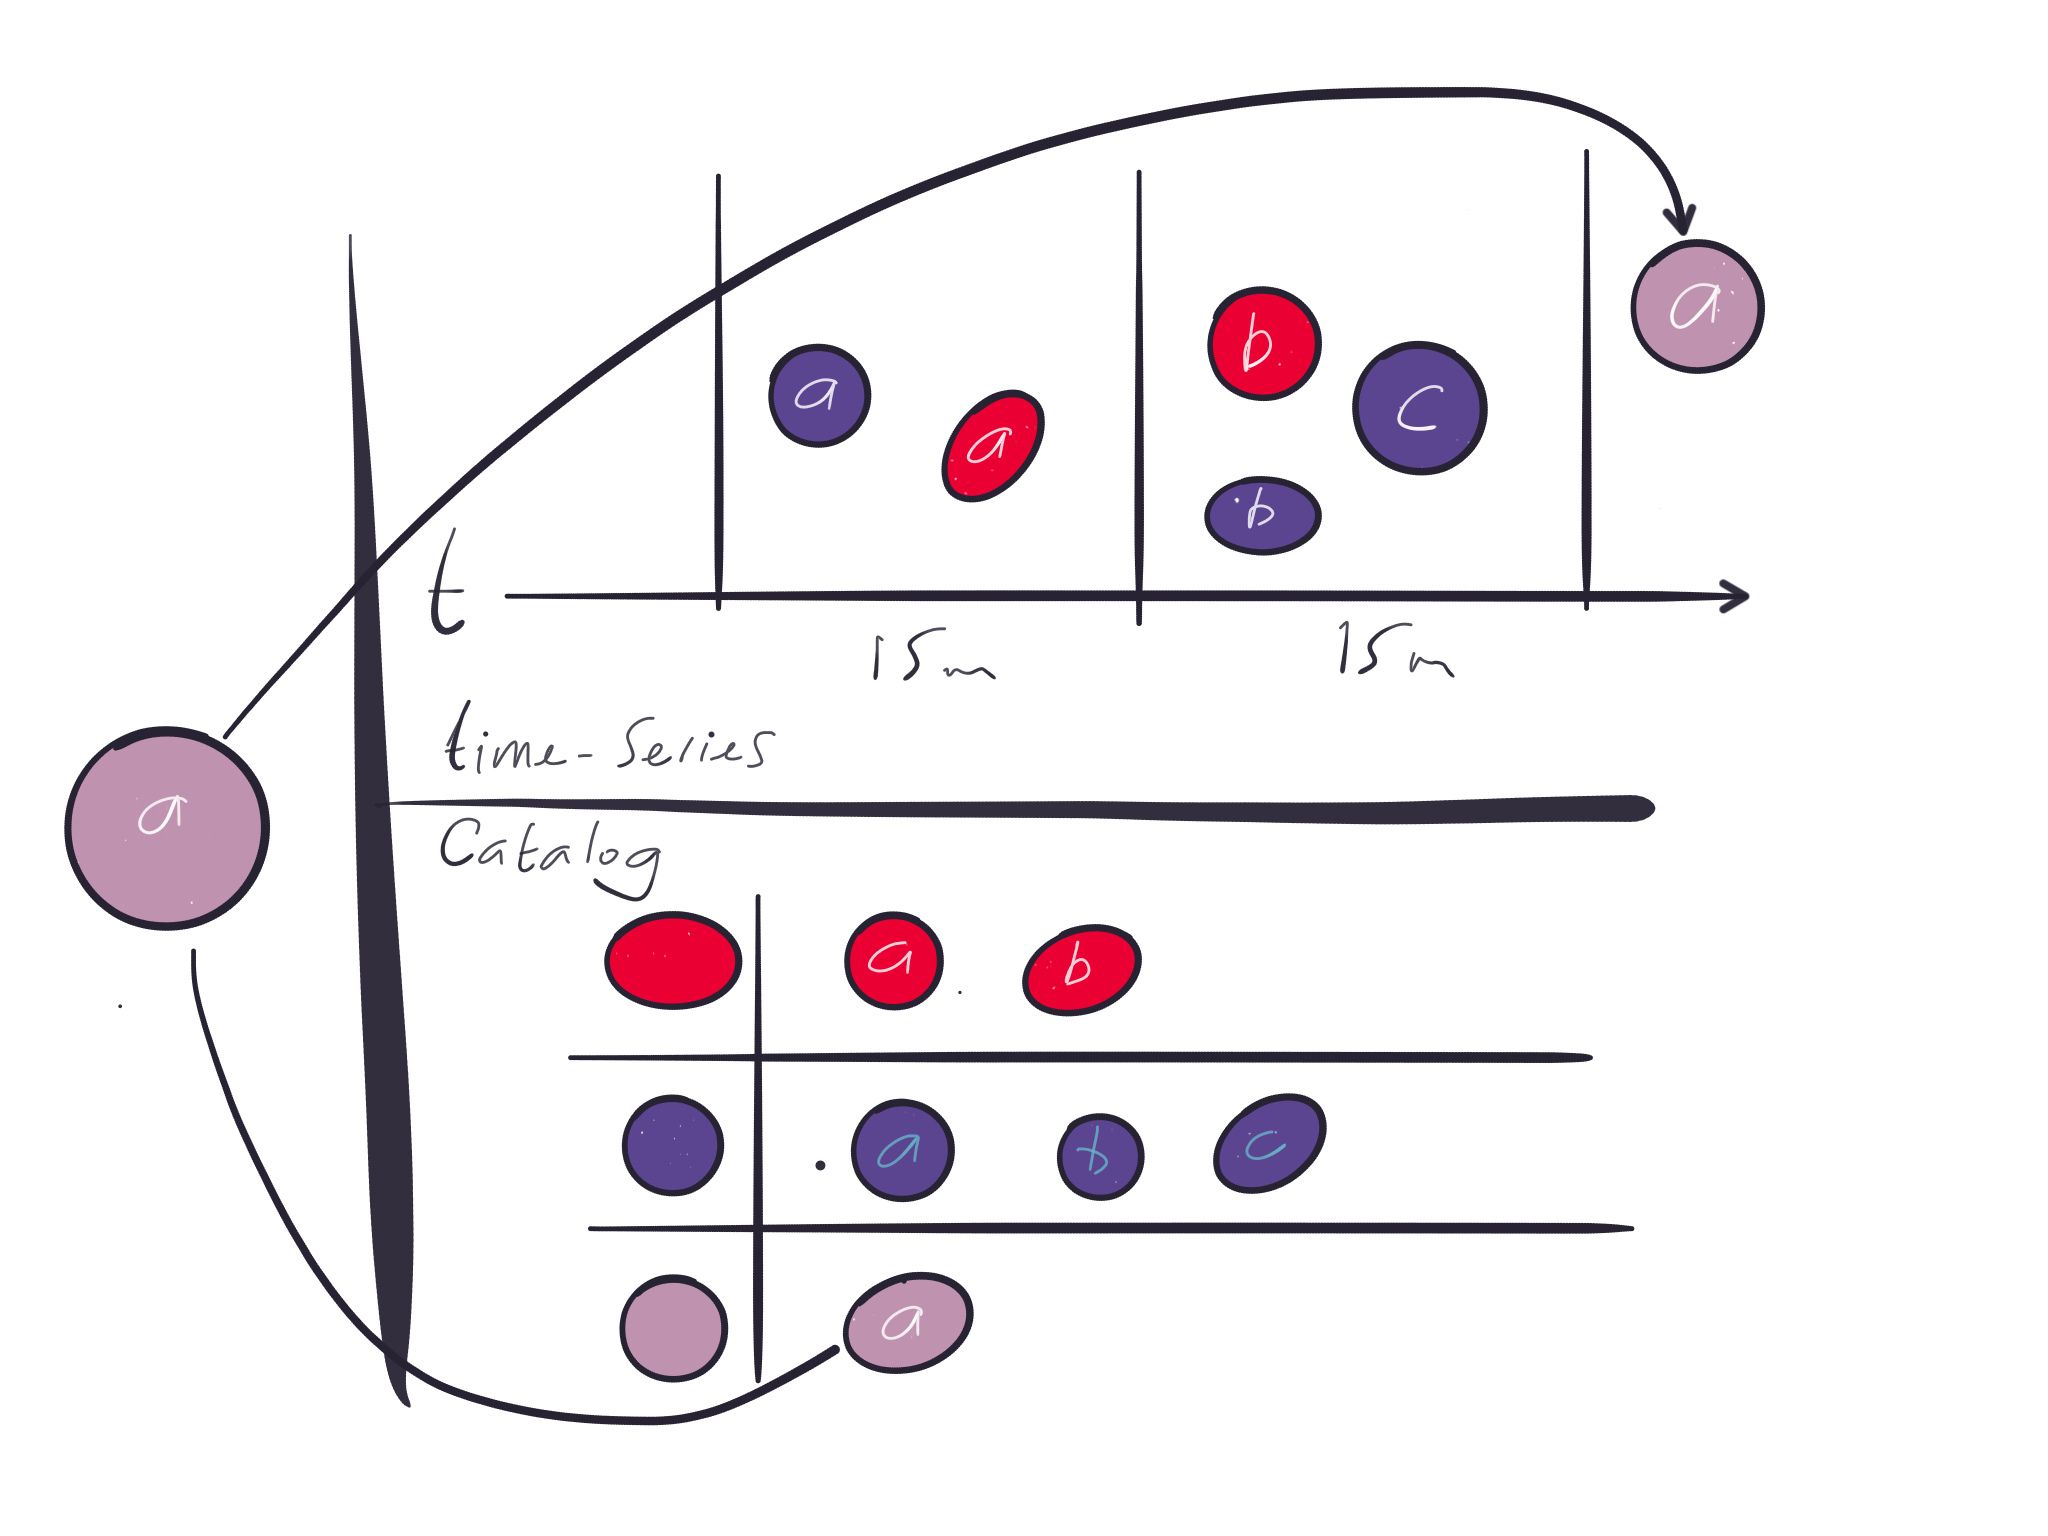 a
b
a
a
c
b
t
15m
15m
time-series
a
Catalog
a
b
a
b
c
a